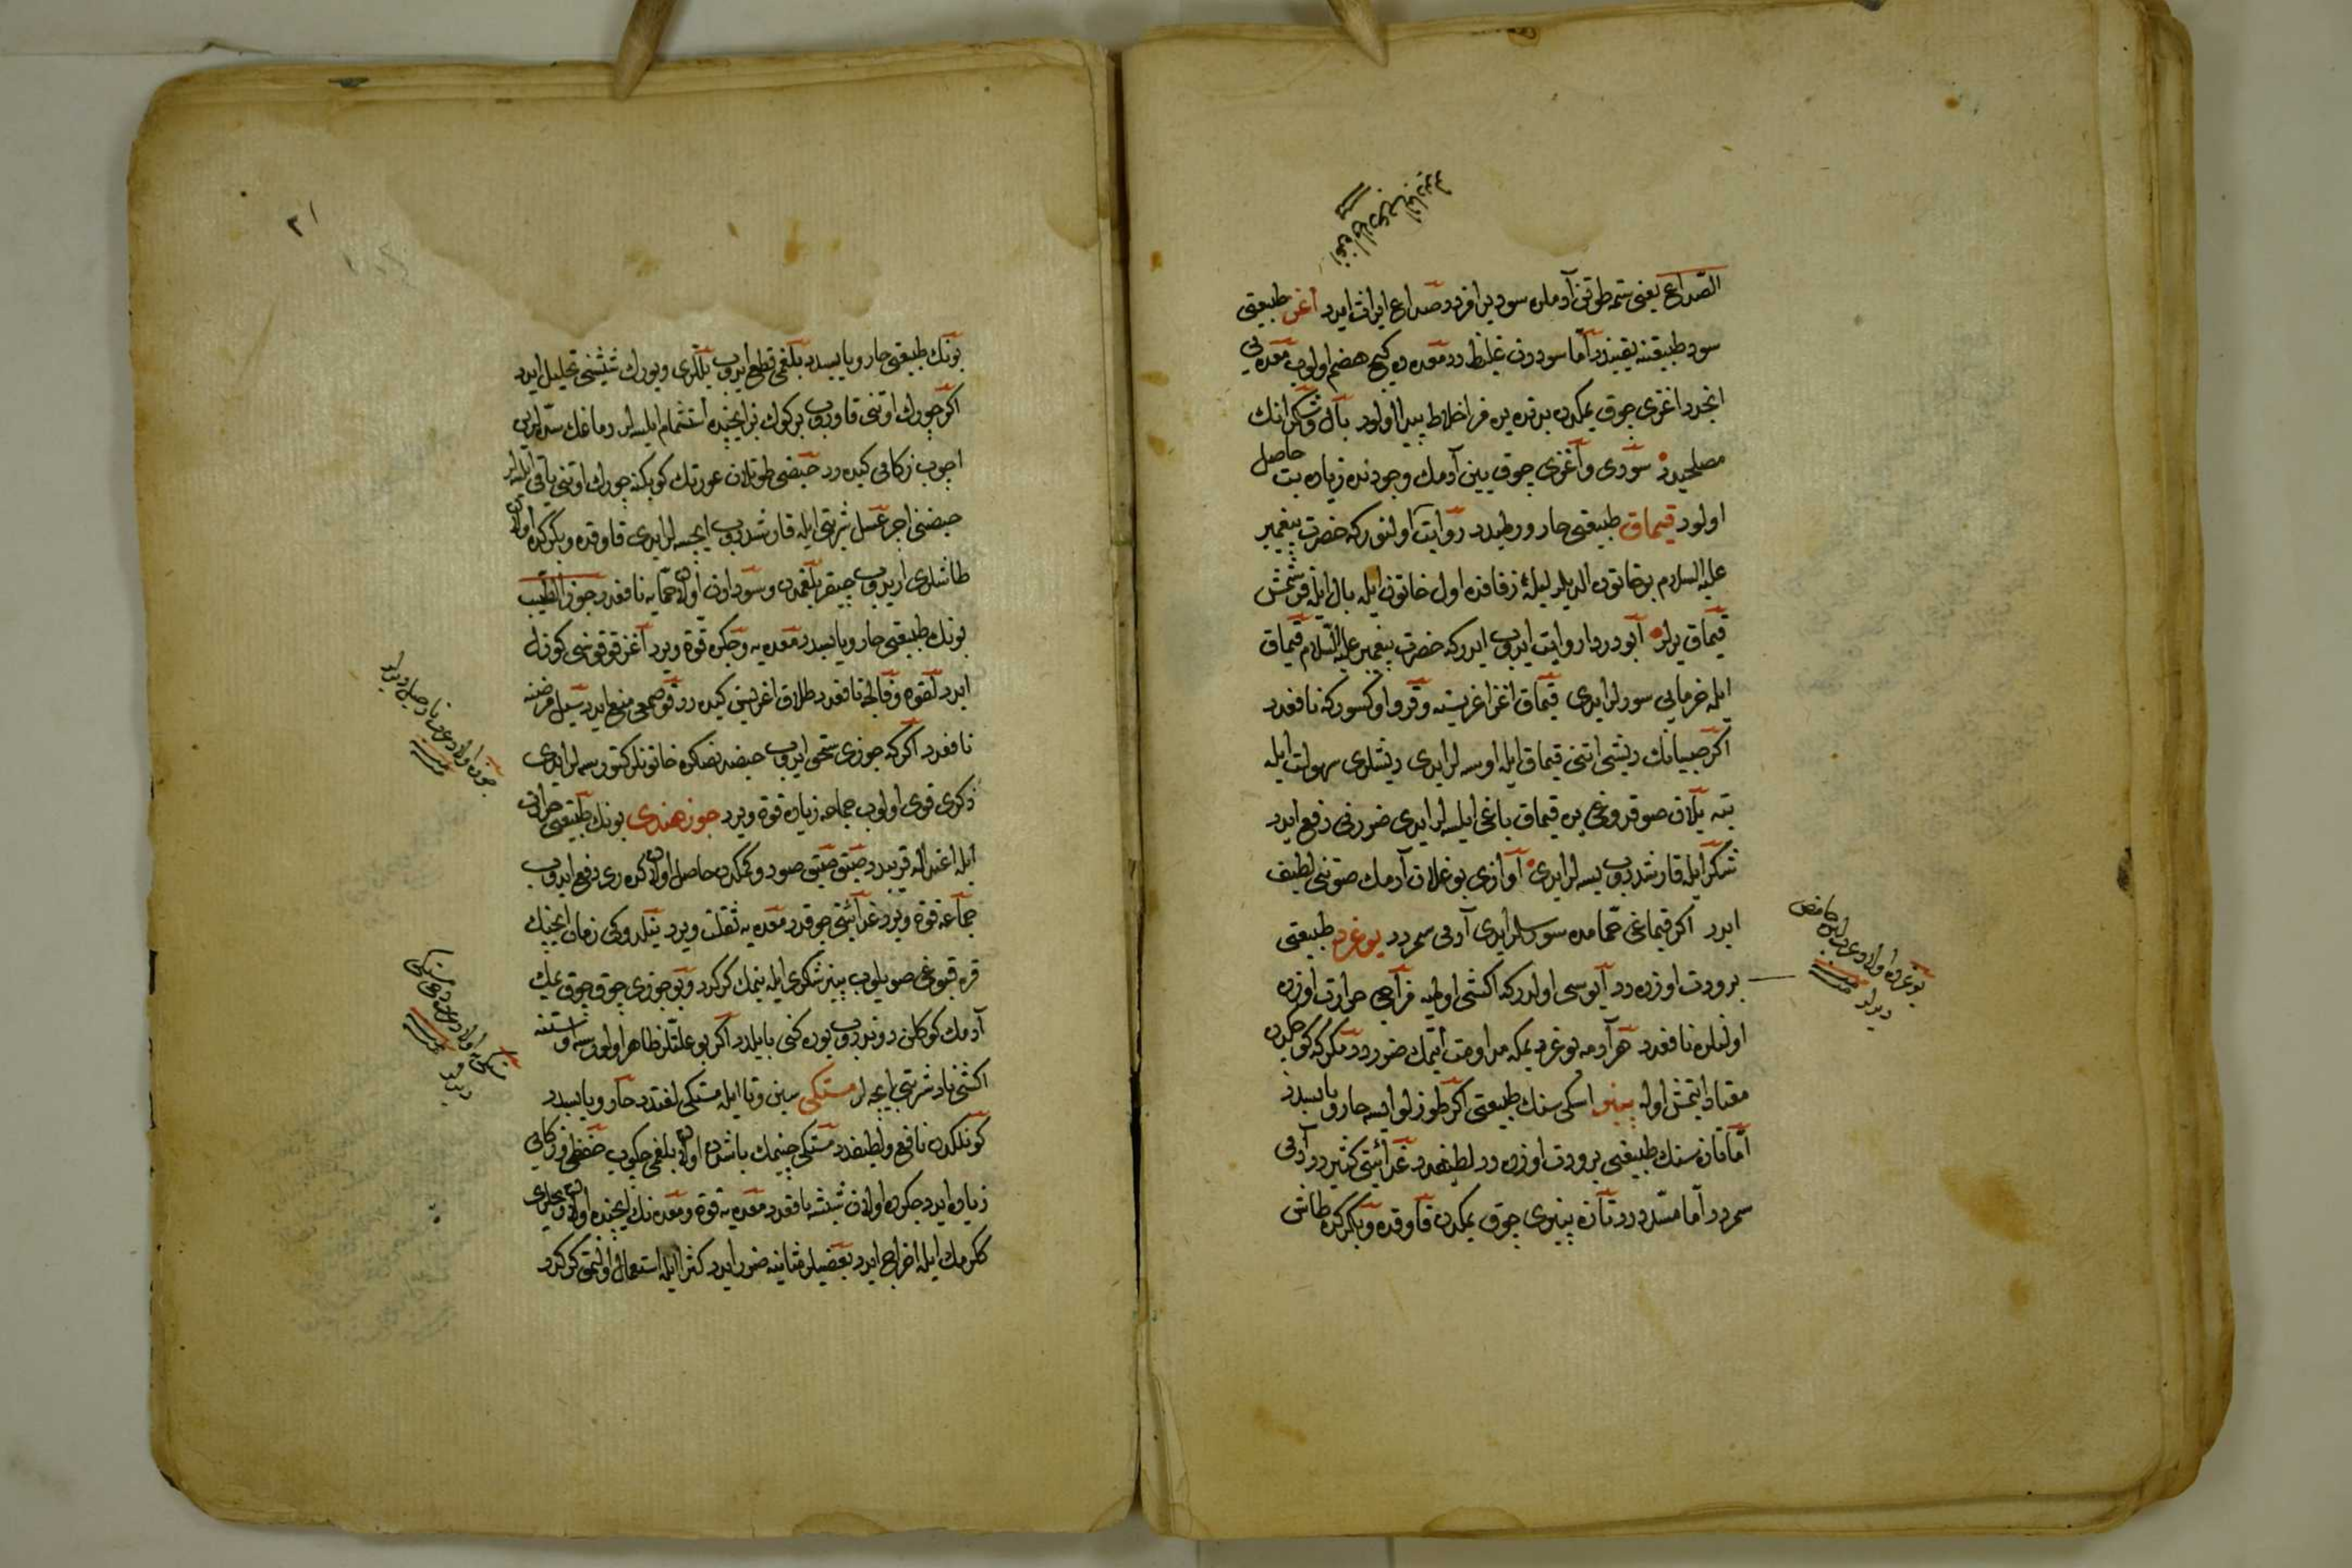 الصداع یعنی ستمه طوتن آدملره سود یرامزدر صداع ایراث ایدر اغز طبیعتی
سود طبیعتنه یقیندر اما سوددن غلیظدر معده ده کیج هضم اولوب معده یی
انجدر اغزی چوق یمکدن بدنده یره مز اخلاط پیدا اولور بال وشکر انک
مصلحیدر سودی و آغزی چوق یین آدمک وجودنده زیاده بت حاصل
اولور قیماق طبیعتی حار ورطبدر روایت اولنور که حضرت پیغمبر
علیه السلام بر خاتون الدیلر لیلۀ زفافده اول خاتون ایله بال ایله قرشمش
قیماق یدلر ابو دردا روایت ایدوب ایدر که حضرت پیغمبر علیه السلام قیماق
ایله خرمایی سورلر ایدی قیماق اغز اغریسنه و قرو اوکسورکه نافعدر
اکر صبیانک دیشی اتنی قیماق ایله اوسه لر ایدی دیشلری سهولت ایله
بته ییلان صوقدوغی یره قیماق یاغی ایلسه لر ایدی ضررنی دفع ایدر
شکر ایله قارشدروب یسه لر ایدی آوازی بوغلان آدمک صوتنی لطیف
ایدر اکر قیماغی حمامده سورسلر ایدی آدمی سمردر یوغرد طبیعتی
برودت اوزره در آیوسی اولدر که اکشی اولمیه مزاجی حرارت اوزره
اولنلره نافعدر هر آدمه یوغرد یمکه مداومت ایتمک ضرردر مکر که کوجکدن
معتاد ایتمش اوله پینیر اسکی سنک طبیعتی اکر طوزلو ایسه حار ویابسدر
اما تازه سنک طبیعتی برودت اوزره در لطیفدر غدائیتی کثیردر آدمی
سمردر اما مسددر تازه پینیری چوق یمکدن قاوقده و بکرکده طاش
یوغرده اولا دعرب لبن حامض
دیرلر
۳۱
بونک طبیعتی حار ویابسدر بلغمی قطع ایدوب یللری ویورک شیشنی تحلیل ایدر
اکر چورک اوتنی قاوروب بر کوک بز ایچنده استشمام ایلسه لر دماغک سدلرینی
اچوب زکامی کیده رر حیضی طوتلان عورتک کوبکنه چورک اوتنی یاقی ایلسه لر
حیضنی اچر عسل شربتی ایله قارشدروب ایچسه لر ایدی قاوقده وبکرکده اولان
طاشلری اریدوب چیقرر بلغمدن وسودادن اولان حمایه نافعدر جوز الطیب
بونک طبیعتی حار ویابسدر معدیه وجکره قوة ویرر آغز قوقوسنی کوزل
ایدر لقوه وفالجه نافعدر طلاق اغریسن کیده رر وقوصمغی منع ایدر سبل مرضنه
نافعدر اکر که جوزی سحق ایدوب حیضدنصکره خاتونلر کتورسه لر ایدی
ذکری قوی اولوب جماعه زیاده قوة ویرر جوز هندی بونک طبیعتی حرارتی
ایله اعتداله قریبدر صیق صیق صود وکمکدن حاصل اولان کده ری دفع ایدوب
جماعه قوة ویرر غدائیتی چوقدر معدیه ثقلت ویرر ینلدوکی زمان ایچنک
قره قبوغی صویلوب بینر شکری ایله ینمک کرکدر وبو جوزی چوق چوق یمک
آدمک کوکلن دوندروب یوره کنی بایلدر اکر بو علتلر ظاهر اولورسه اوستنه
اکشی نار شربتی ایچه لر مستکی سین وتا ایله مستکی لغتدر حار ویابسدر
کونلکدن نافع ولطیفدر مستکی چینمک باشده اولان بلغمی چکوب حفظی وزکایی
زیاده ایدر جکرده اولان شیشه نافعدر معدیه قوة ومعده نک ایچنده اولان یللری
ککرمک ایله اخراج ایدر بعضیلر مثانیه ضرر ایدر کثیرا ایله استعمال اولنمق کرکدر
جوزه اولا دعرب نارجیل دیرلر